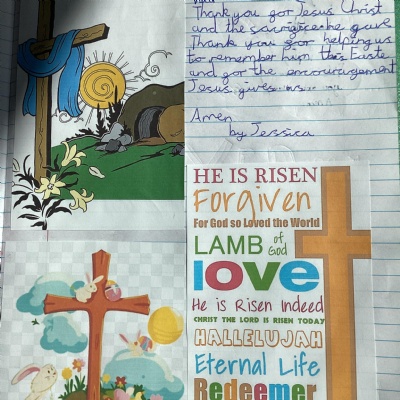 Thank you for Jesus Christ
and the sacrifice he gave
Thank you for helping us
to remember him this Easte
and for the encouragement
Jesus gives us
Amen
by Jessica
HE IS RISEN
Forgiven
For God so Loved the World
LAMB of God
love
He is Risen Indeed
CHRIST THE LORD IS RISEN TODAY
HALLELUJAH
Eternal Life
Redeemer